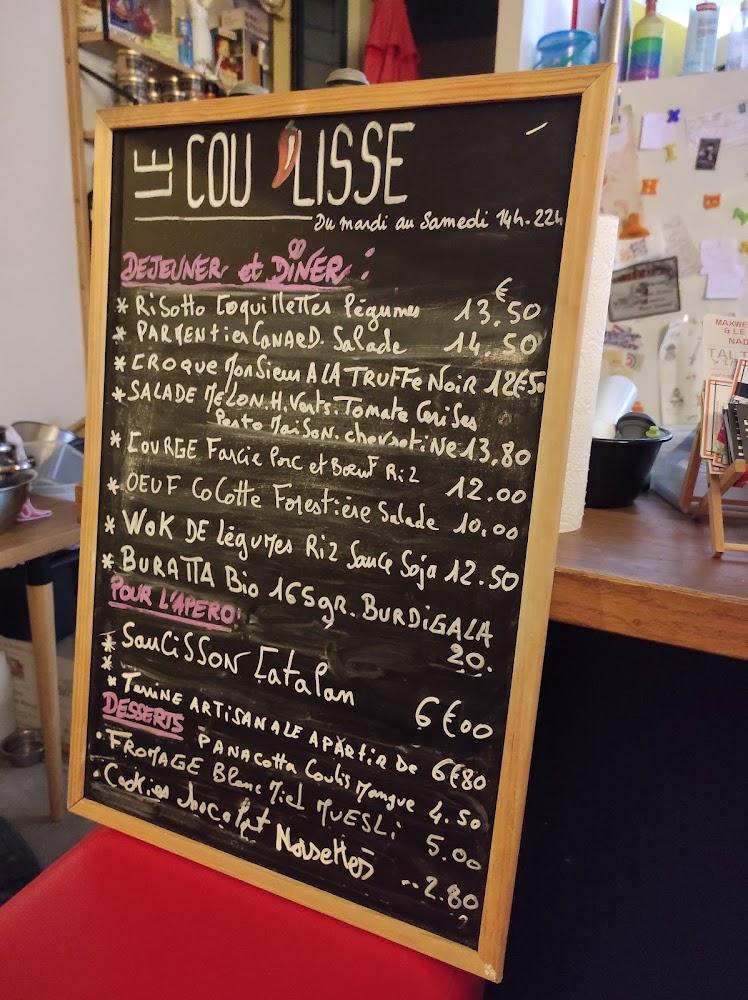 LE COULISSE
Du mardi au Samedi 14h-22h
DEJEUNER et DÎNER :
€
* Risotto Coquillettes légumes 13,50
* PARMENTIER CANARD. Salade 14,50
* CROQUE MonSieur A LA TRUFFE NOIR 12€50
* SALADE MELON.H.Verts.Tomate Cerises
Pesto MaiSON.chevrotiNe 13,80
* COURGE Farcie Porc et Bœuf Riz 12.00
* OEUF COCOTTE Forestière Salade 10,00
* WOK DE légumes Riz Sauce Soja 12.50
* BURATTA Bio 165gr. BURDIGALA
20.
POUR L'APERO
* SauCiSSON Catalan 6€00
*
* Terrine ARTISANALE APARTIR De 6€80
DESSERTS
PANACOTTA Coulis Mangue 4.50
• FROMAGE Blanc Miel MUESLi 5.00
• Cookies chocolat Noisettes ..2.80
MAXWE
& LE
NAD